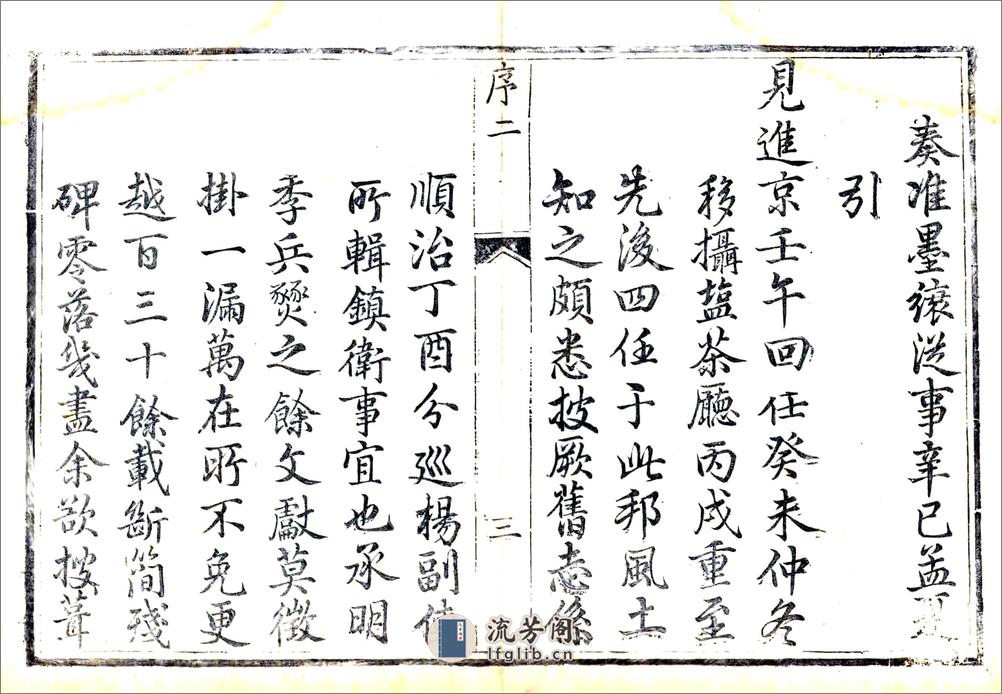 奏准墨縗從事辛巳孟夏
引
見進京壬午回任癸未仲冬
移攝盐茶廳丙戌重至
先後四任于此邦風土
知之頗悉披厥舊志係
序二
三
順治丁酉分巡楊副使
所輯鎮衛事宜也承明
季兵燹之餘文獻莫徵
掛一漏萬在所不免更
越百三十餘載斷簡殘
碑零落幾盡余欲搜葺
流芳阁
lfglib.cn